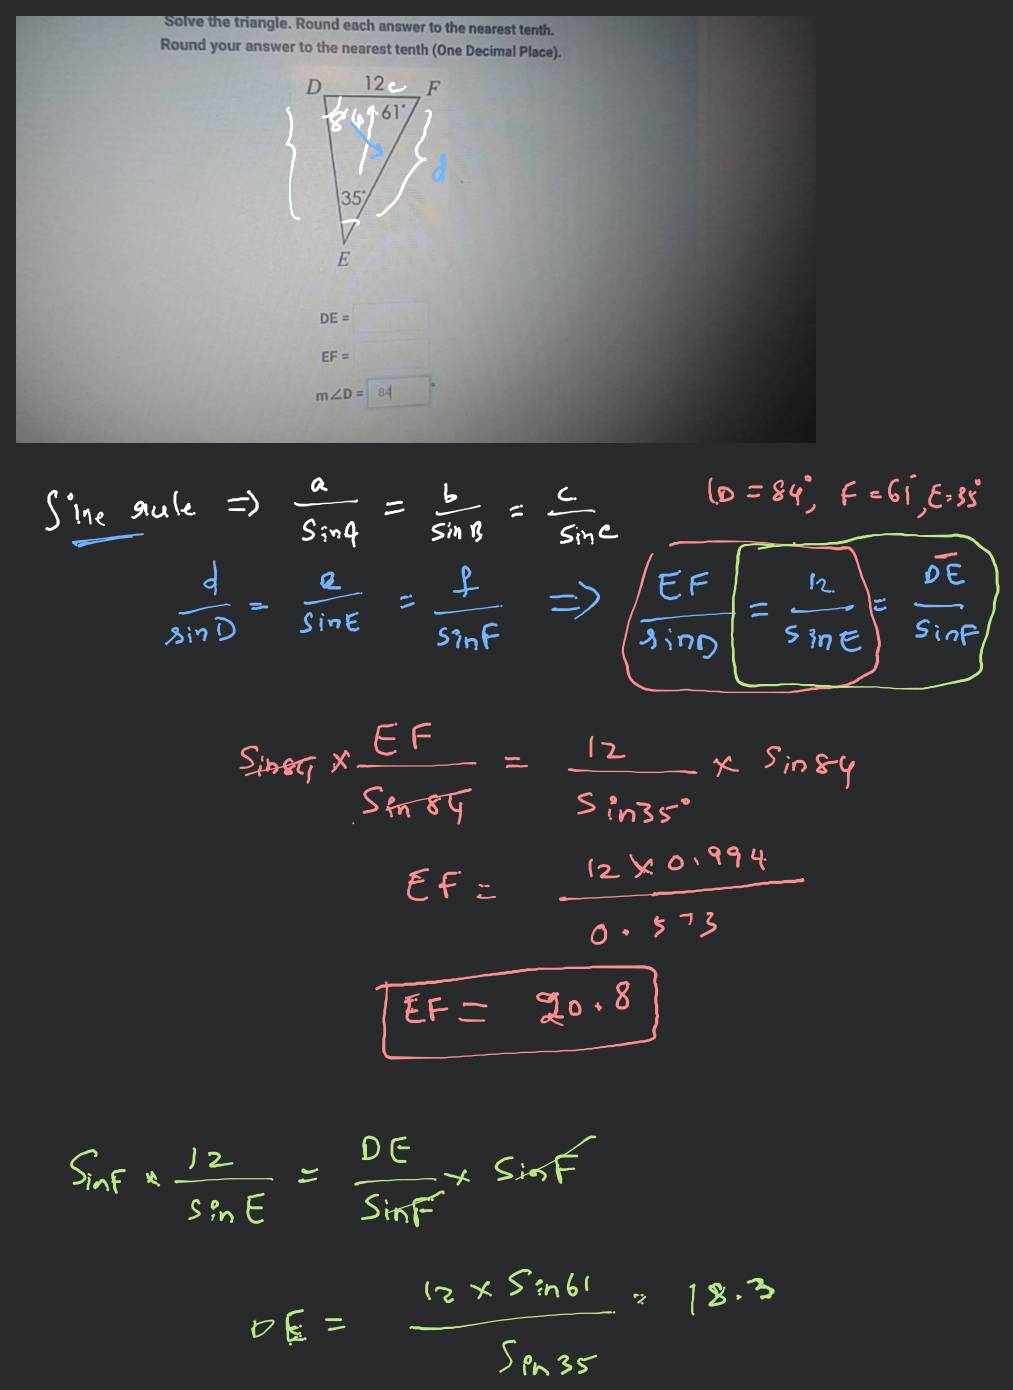 Solve the triangle. Round each answer to the nearest tenth.
Round your answer to the nearest tenth (One Decimal Place).
D 12 e F
84° 61°
d
35°
E
DE =
EF =
m∠D = 84 °
Sine rule => a/SinA = b/SinB = c/SinC
∠D = 84°, F = 61°, E = 35°
d/sinD = e/sinE = f/sinF => EF/sinD = 12/sinE = DE/sinF
Sin84 × EF/Sin 84 = 12/Sin35° × Sin84
EF = 12 × 0.994/0.573
EF = 20.8
SinF × 12/sinE = DE/SinF × SinF
DE = 12 × Sin61/Sin 35 = 18.3